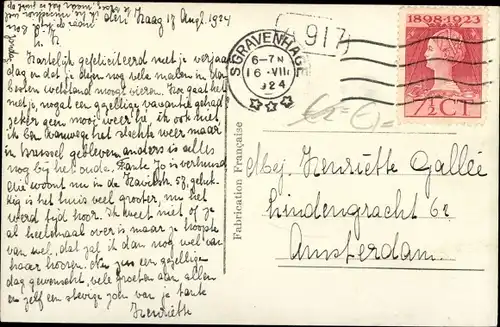 den Haag 17 Augs. 1924
L. K.
Hartelijk gefeliciteerd met je verjaar
dag en dat je dien nog vele malen in den
besten welstand moogt vieren. Hoe gaat het
met je, nogal een gezellige vacantie gehad
zeker geen mooi weer hè, ik ook niet
ik ben vanwege het slechte weer maar
in Brussel gebleven, anders is alles
nog bij het oude. Tante Jo is verhuisd
die woont nu in de 58, geluk
kig is het huis veel grooter, nu het
werd tijd hoor. Ik weet niet of je
al heelemaal over is maar je hoopte
van wel, dat zal ik dan nog wel van
haar hooren. Nu zus een gezelligen
dag gewenscht, vele groeten aan allen
en zelf een stevige zoen van je tante
Henriëtte
Fabrication Française
'S GRAVENHAGE
6-7 N
16 VIII
924
917
1898-1923
7½ CT
Mej. Henriëtte Gallée
Lindengracht 62
Amsterdam.